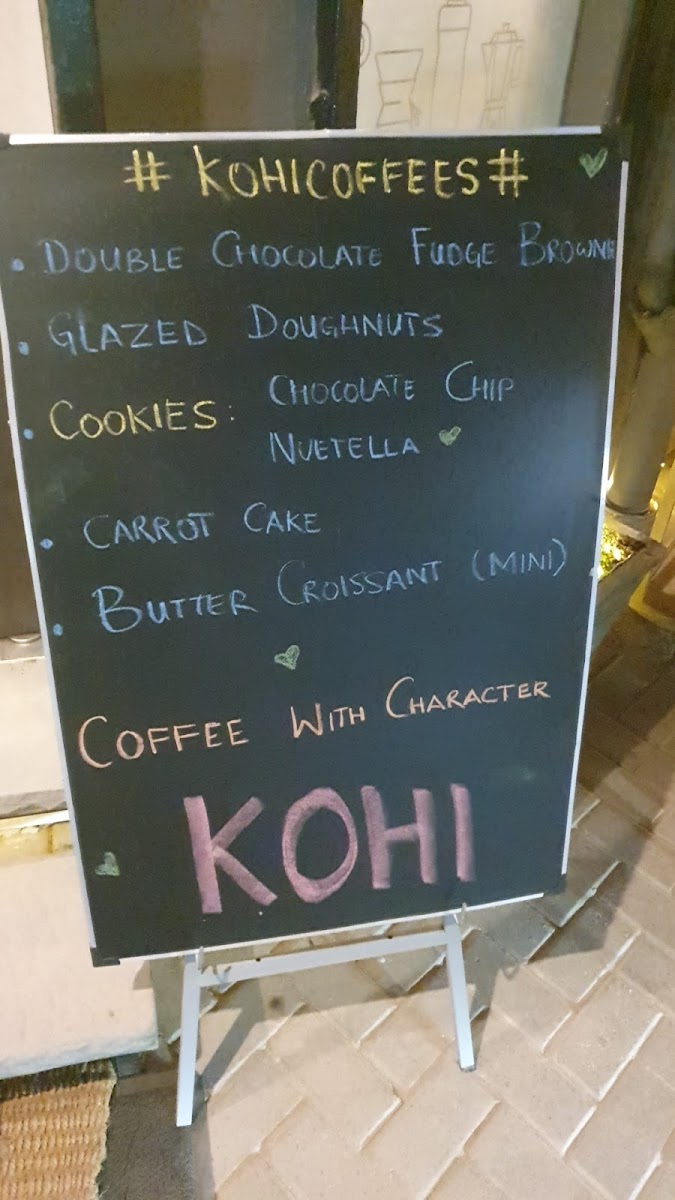 # KOHICOFFEES#
• DOUBLE CHOCOLATE FUDGE BROWNIE
• GLAZED DOUGHNUTS
• COOKIES: CHOCOLATE CHIP
NUETELLA
• CARROT CAKE
• BUTTER CROISSANT (MINI)
COFFEE WITH CHARACTER
KOHI